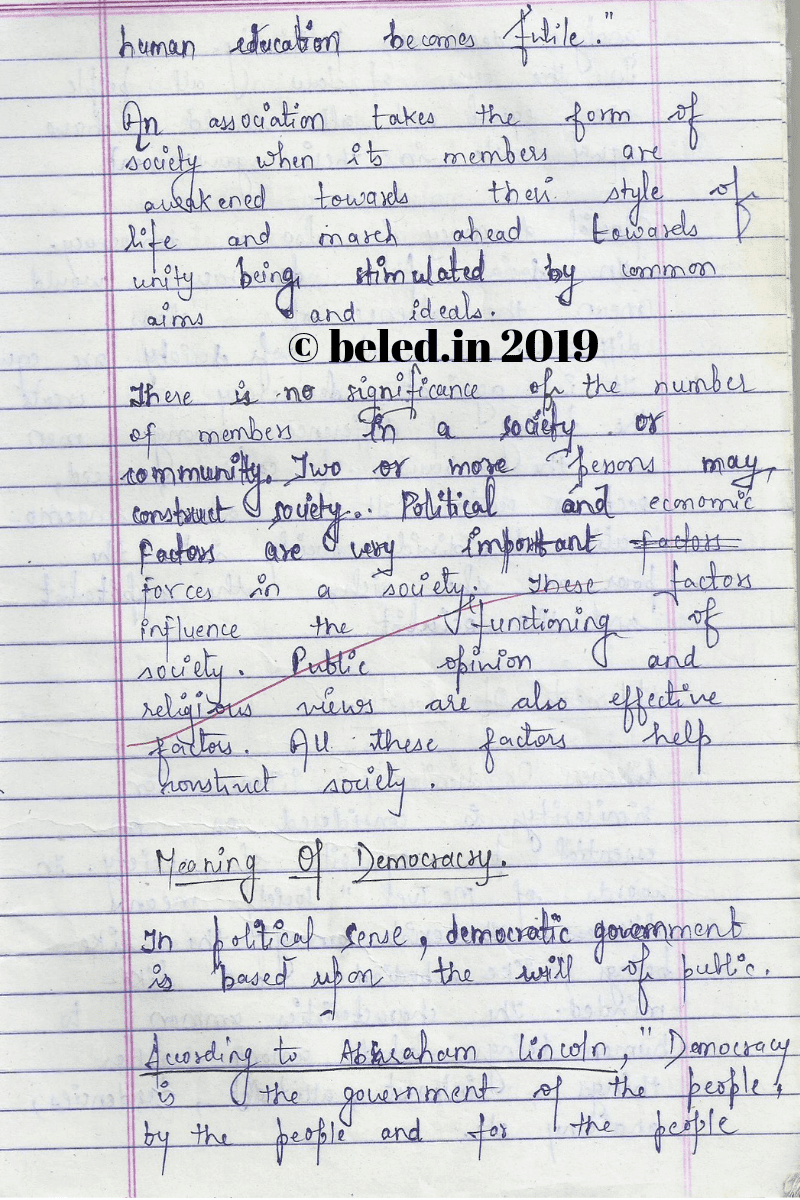 human education becomes futile."
An association takes the form of
society when its members are
awakened towards their style of
life and march ahead towards
unity being stimulated by common
aims and ideals.
© beled.in 2019
There is no significance of the number
of members In a society or
community. Two or more persons may
construct society... Political and economic
factors are very important factors
forces in a society. These factors
influence the functioning of
society. Public opinion and
religious views are also effective
factors. All these factors help
construct society.
Meaning Of Democracy.
In political sense, democratic government
is based upon the will of public.
According to Abraham lincoln, "Democracy
is the government of the people,
by the people and for the people